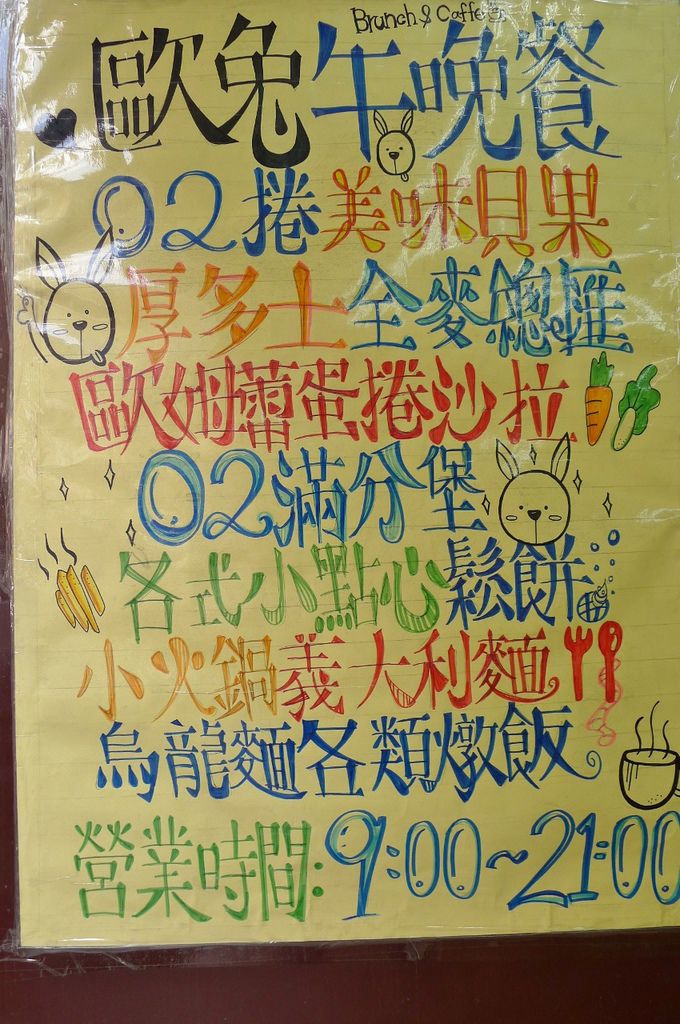 Brunch & Caffe
歐兔午晚餐
02捲美味貝果
厚多士全麥總匯
歐姆蕾蛋捲沙拉
02滿分堡
各式小點心鬆餅
小火鍋義大利麵
烏龍麵各類燉飯
營業時間:9:00~21:00